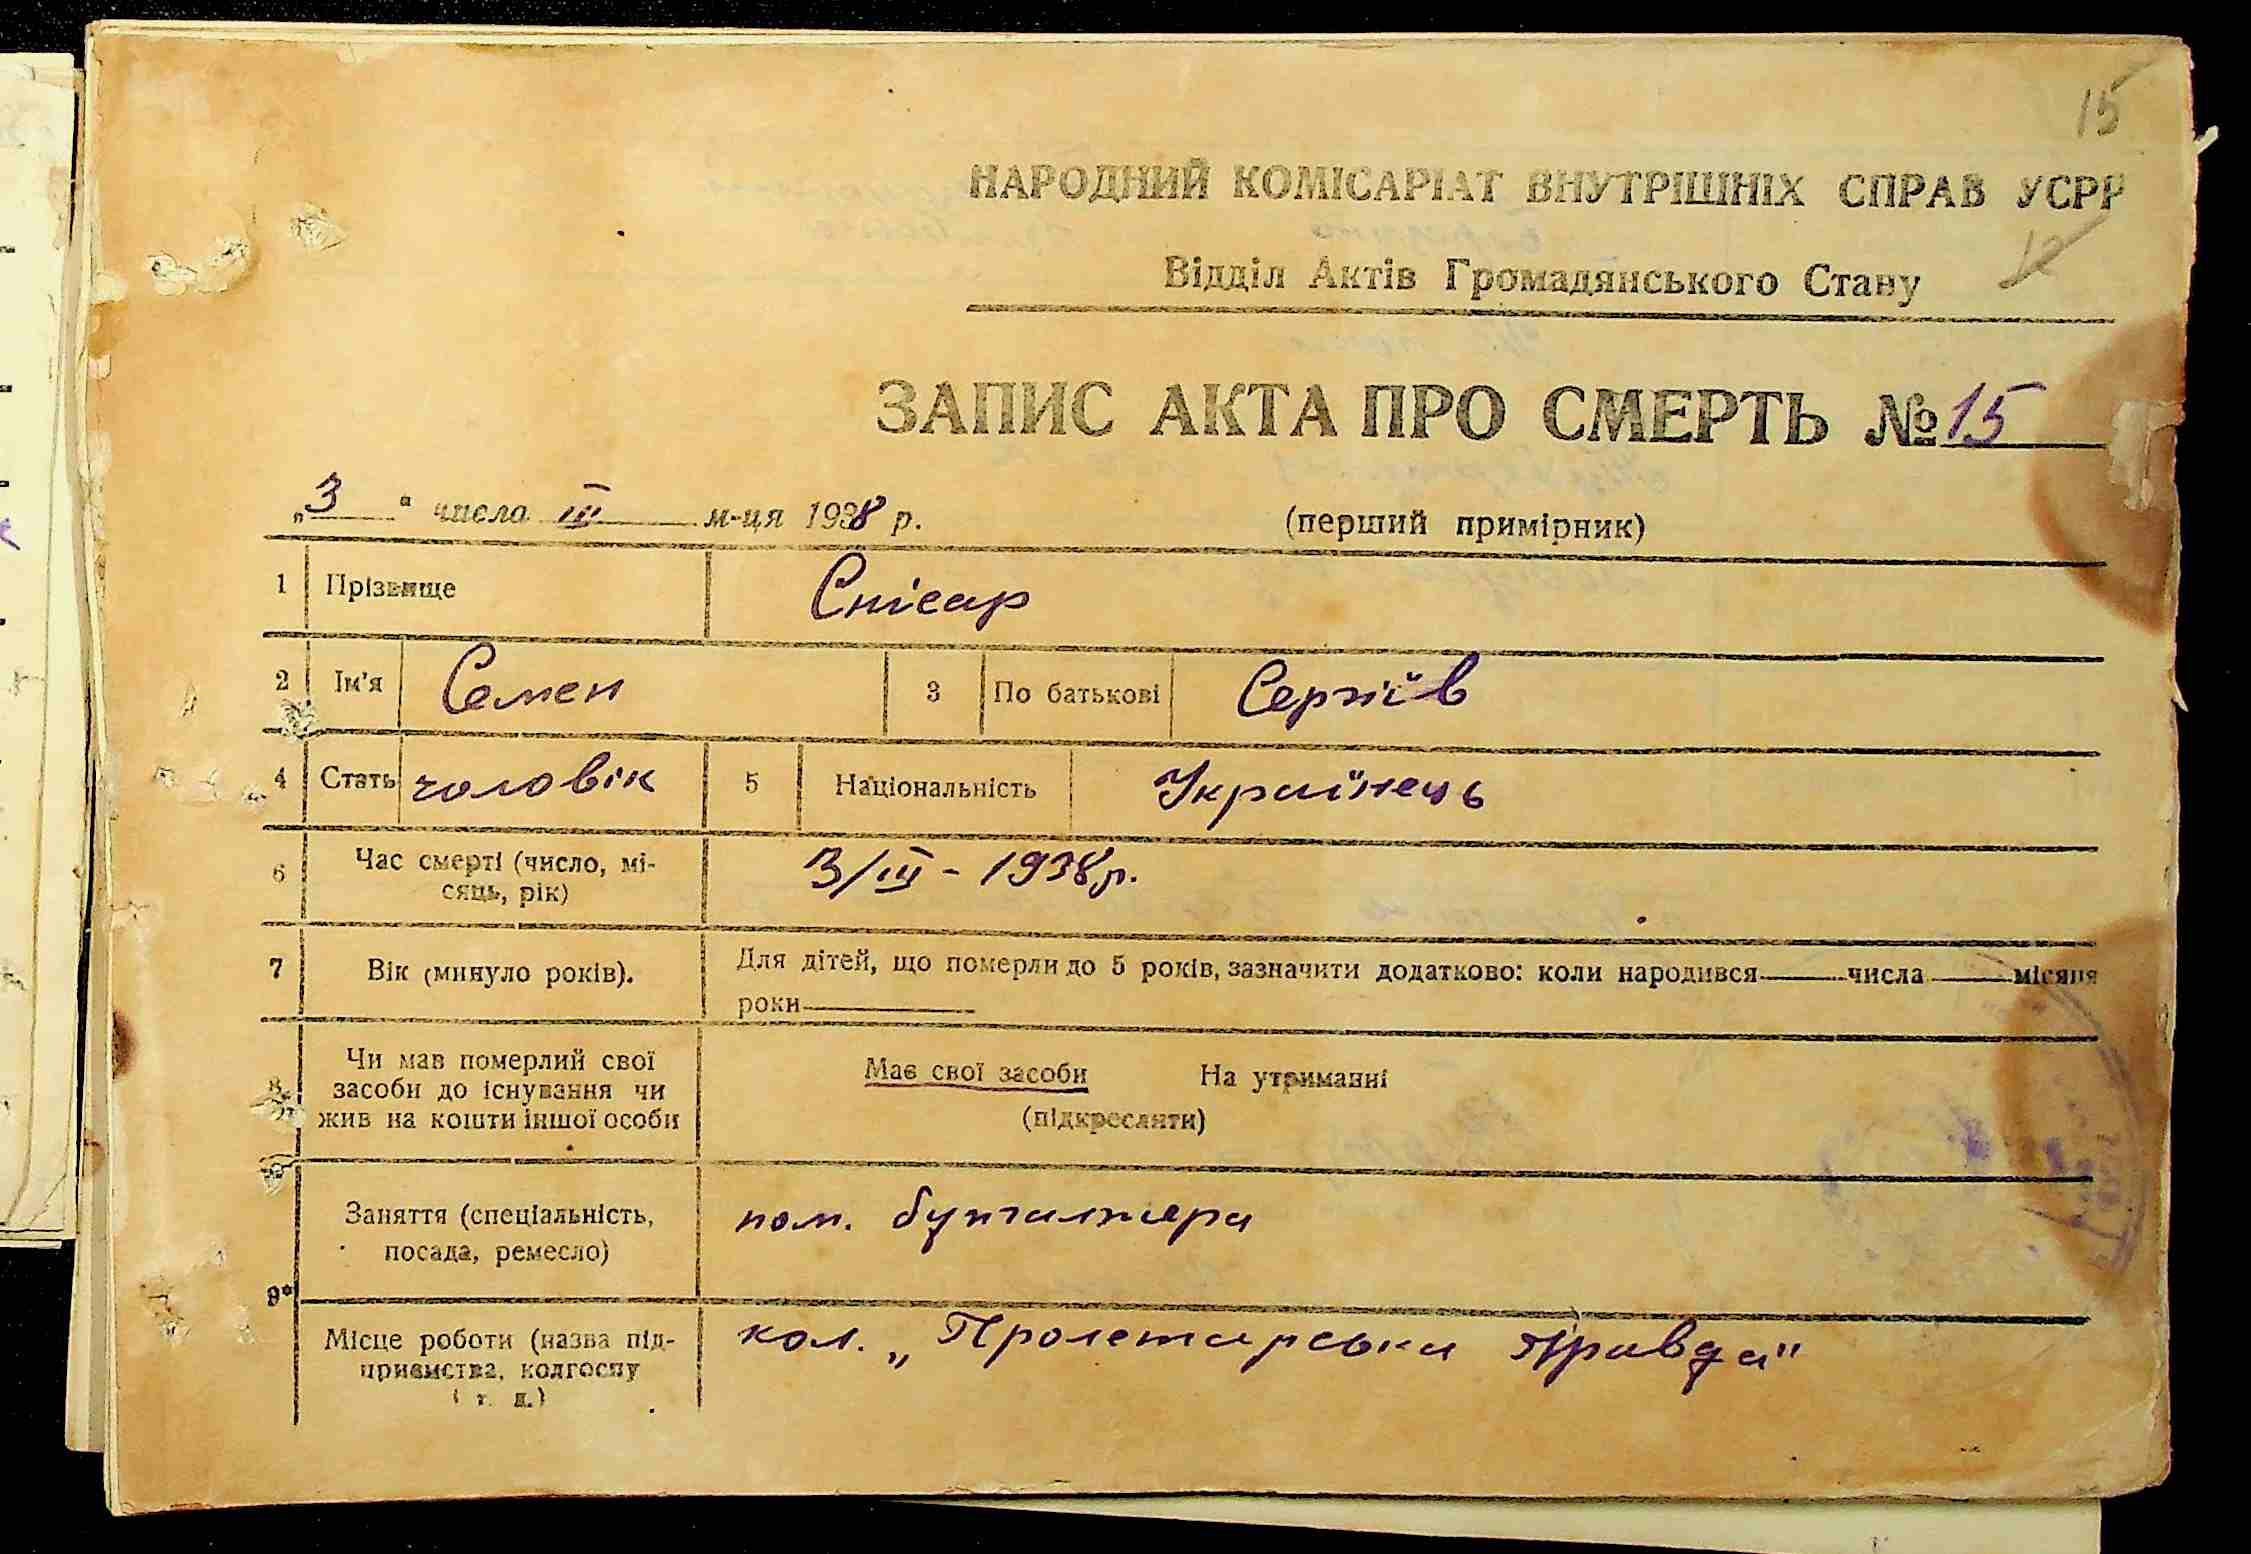 15
НАРОДНИЙ КОМІСАРІАТ ВНУТРІШНІХ СПРАВ УСРР
Відділ Актів Громадянського Стану
ЗАПИС АКТА ПРО СМЕРТЬ № 15
„3" числа III м-ця 1938 р. (перший примірник)
1 Прізвище Снісар
2 Ім'я Семен 3 По батькові Сергіїв
4 Стать чоловік 5 Національність Українець
6 Час смерті (число, мі-
сяць, рік) 3/III - 1938 р.
7 Вік (минуло років). Для дітей, що померли до 5 років, зазначити додатково: коли народився числа місяця
роки
8 Чи мав померлий свої
засоби до існування чи
жив на кошти іншої особи
Має свої засоби На утриманні
(підкреслити)
Заняття (спеціальність,
посада, ремесло) пом. бухгалтера
9*
Місце роботи (назва під-
приємства, колгоспу
і т. д.) кол. „Пролетарська Правда"